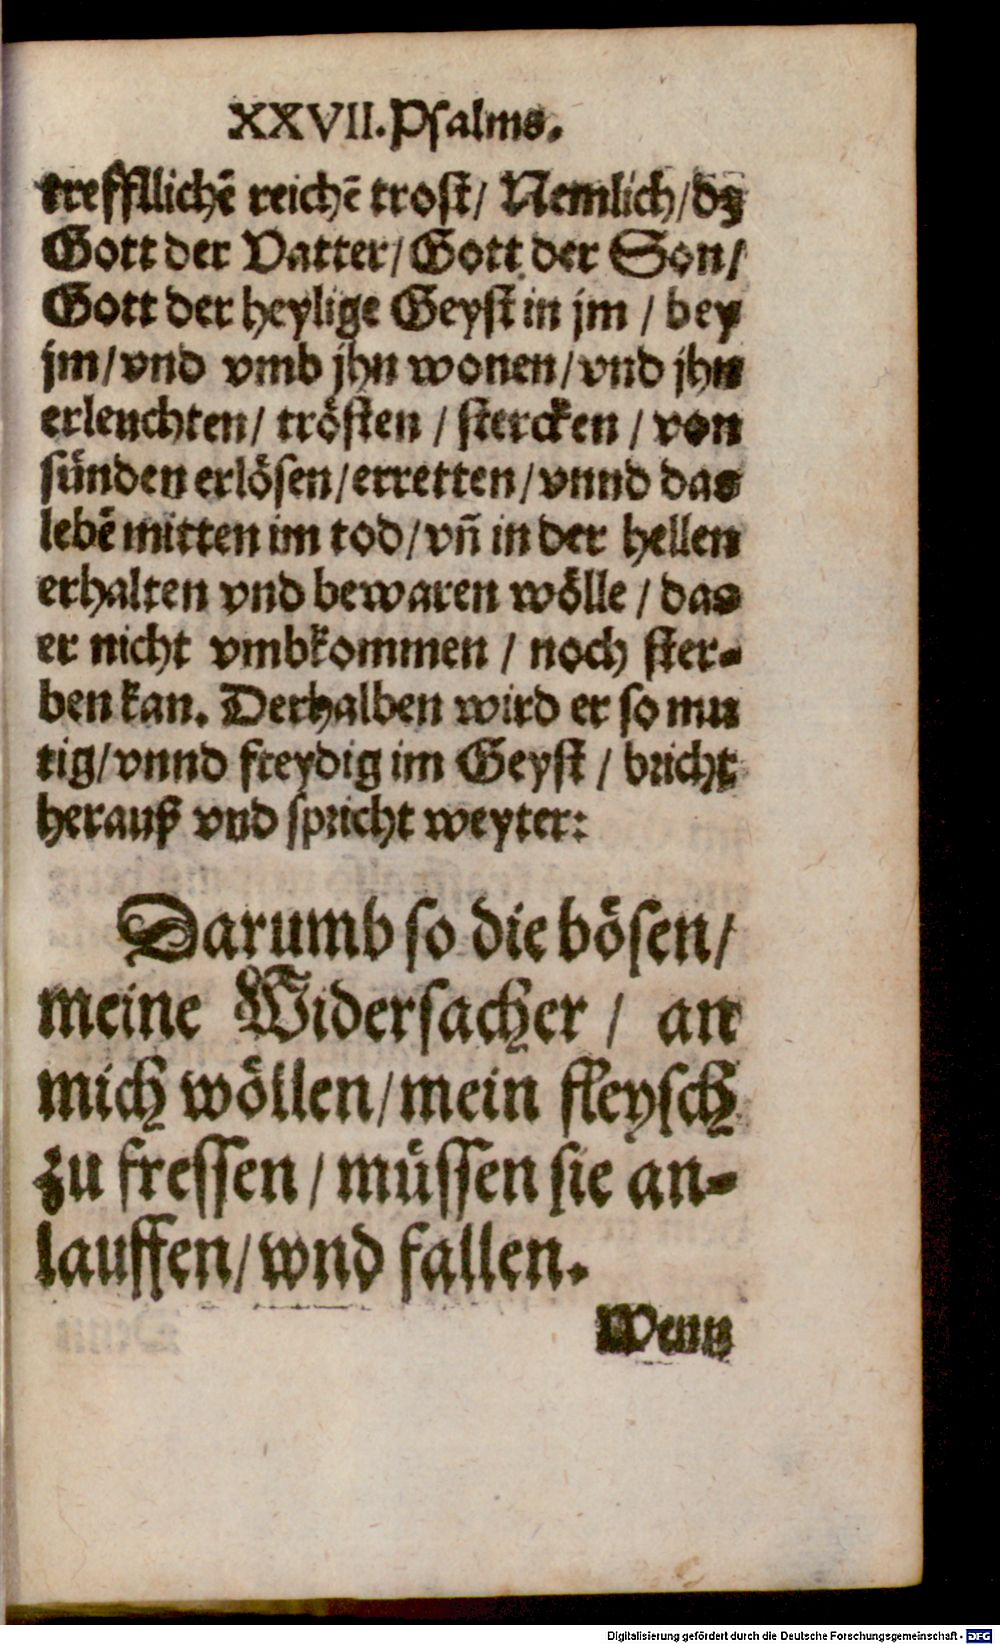 XXVII. Psalms.
treffllichē reichē trost/ Nemlich/ dz
Gott der Vatter/ Gott der Son/
Gott der heylige Geyst in jm / bey
jm/ vnd vmb jhn wonen/ vnd jhn
erleuchten/ trösten / stercken / von
sünden erlösen/ erretten/ vnnd das
lebē mitten im tod/ vñ in der hellen
erhalten vnd bewaren wölle / das
er nicht vmbkommen / noch ster-
ben kan. Derhalben wird er so mu
tig/ vnnd freydig im Geyst / bricht
herauß vnd spricht weyter:
Darumb so die bösen/
meine Widersacher / an
mich wöllen/ mein fleysch
zu fressen / müssen sie an-
lauffen/ wnd fallen.
Wenn
Digitalisierung gefördert durch die Deutsche Forschungsgemeinschaft - DFG